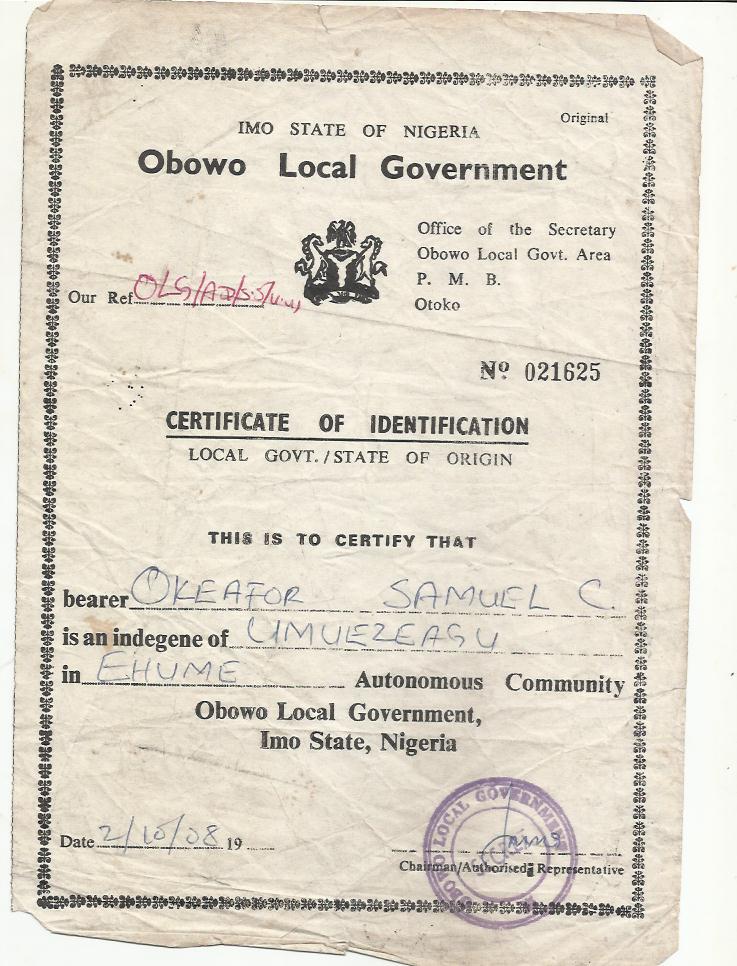 Original
IMO STATE OF NIGERIA
Obowo Local Government
Office of the Secretary
Obowo Local Govt. Area
P. M. B.
Otoko
Our Ref
Nº 021625
CERTIFICATE OF IDENTIFICATION
LOCAL GOVT. / STATE OF ORIGIN
THIS IS TO CERTIFY THAT
bearer OKEAFOR SAMUEL C.
is an indegene of UMUEZEAGU
in EHUME Autonomous Community
Obowo Local Government,
Imo State, Nigeria
Date 2/10/08 19
OBOWO LOCAL GOVERNMENT
Chairman/Authorised Representative